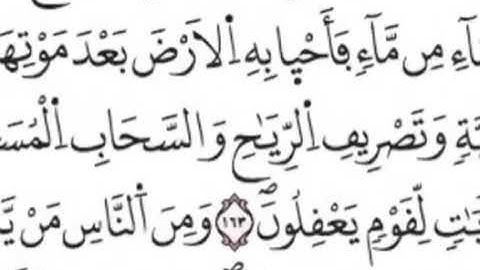 آءِ مِن مَّآءٖ فَأَحْيٜا بِهِ اِ۬لَارْضَ بَعْدَ مَوْتِهَا
ـَّةٖ وَتَصْرِيفِ اِ۬لرِّيَٰحِ وَالسَّحَابِ اِ۬لْمُسَـ
يَٰتٖ لِّقَوْمٖ يَعْقِلُونَۖ ١٦٣ وَمِنَ اَ۬لنَّاسِ مَنْ يَّـ